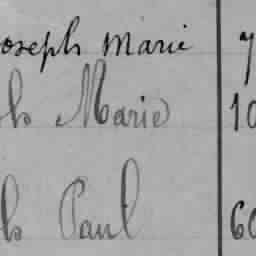 oseph Marie 7
ph Marie 10
ph Paul 60